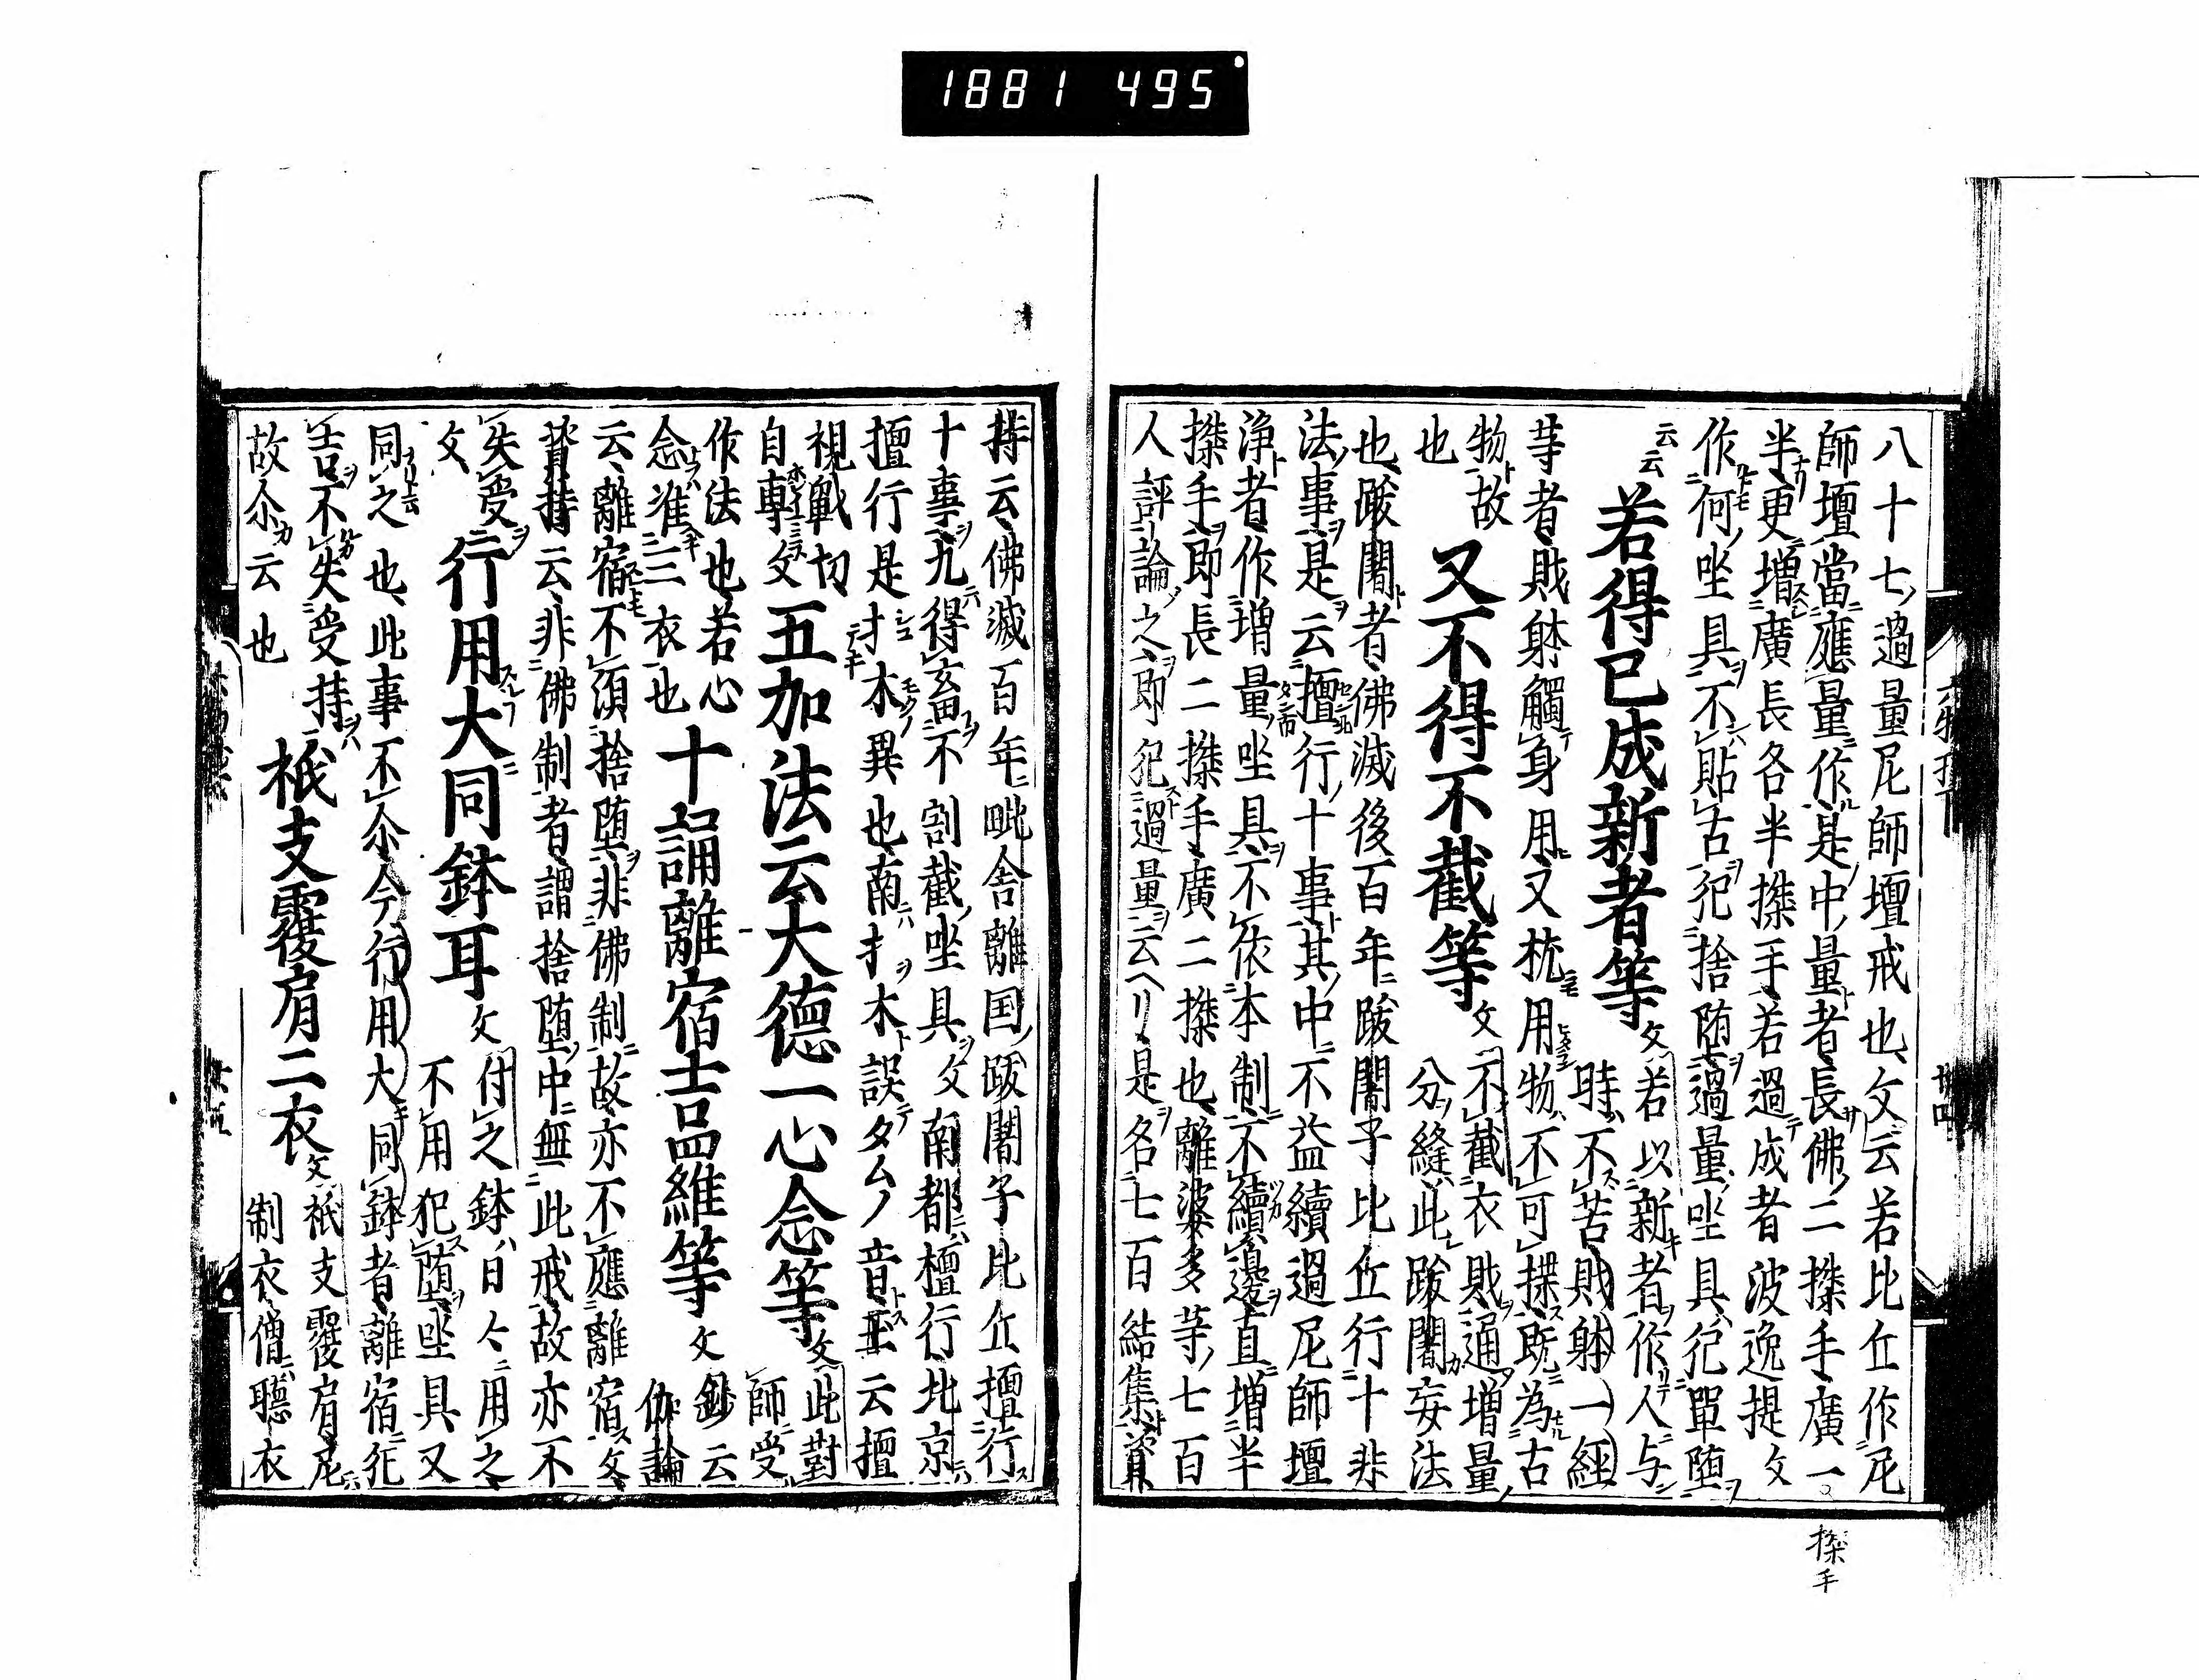 1881 495
八十七過量尼師壇戒也文云若比丘作尼
師壇當應量作是中量者長佛二搩手廣一
半更增廣長各半搩手若過成者波逸提文
作何坐具不貼古犯捨墮過量坐具犯單墮
云云
若得已成新者等文若以新者作人与
時不苦賎躰一經
等者賎躰觸身用又梳用物不可揲既為古
物故
又不得不截等文不截衣賎通増量
也
分縫此跋闍妄法
也跋闍者佛滅後百年跋闍子比丘行十非
法事是云擅行十事其中不益縷過尼師壇
浄者作増量坐具不依本制不續邊直増半
搩手即長二搩手廣二搩也離婆多等七百
人評論之即犯過量云ヘリ是名七百結集資
搩手
持云佛滅百年毗舍離国跋闍子比丘擅行
十事九得畜不割截坐具文南都檀行北京
擅行是扌木異也南扌木誤タムノ音云擅
視戰切
自專文
五加法云大德一心念等文此對
師受
作法也若心
念准三衣也
十誦離宿士品維等文鈔云
伽論
云離宿不須捨墮非佛制故亦不應離宿文
資持云非佛制者謂捨墮中無此戒故亦不
失受
文
行用大同鉢耳文付之鉢日々用之
不用犯墮坐具又
同之也此事不尒今行用大同鉢者離宿犯
吉不失受持
故尒云也
祇支覆肩二衣文祇支覆肩尼
制衣僧聽衣